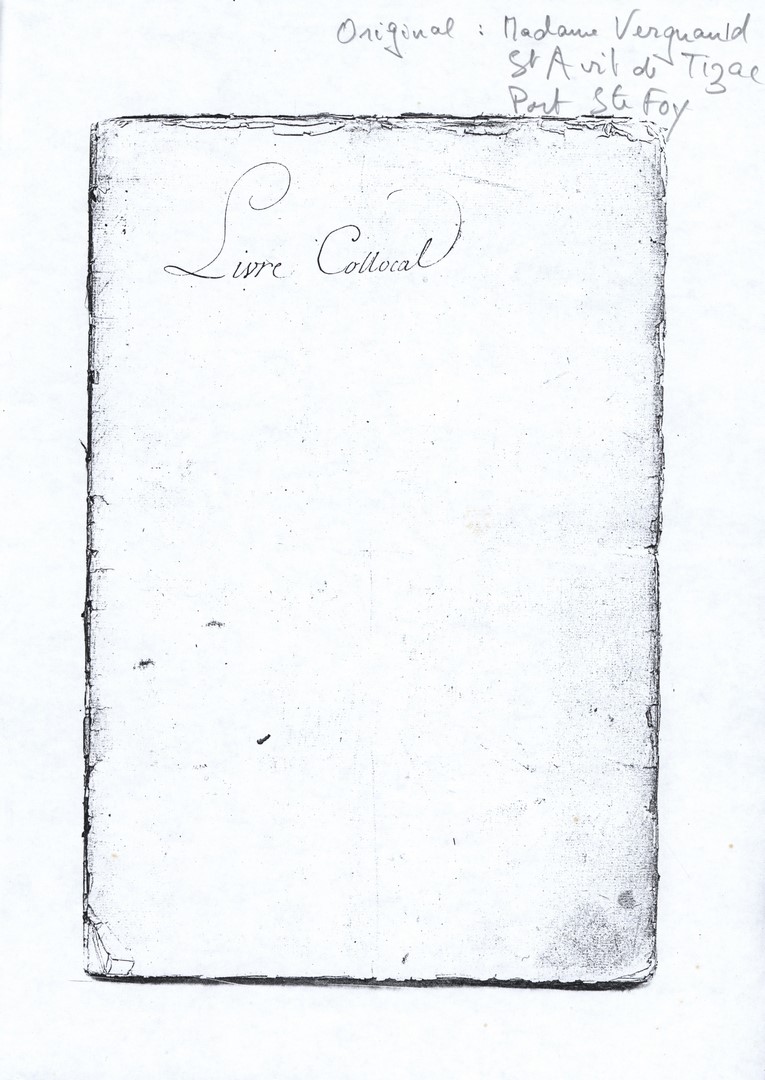 Original : Madame Vergnauld
St Avit de Tizac
Port Ste Foy
Livre Collocal